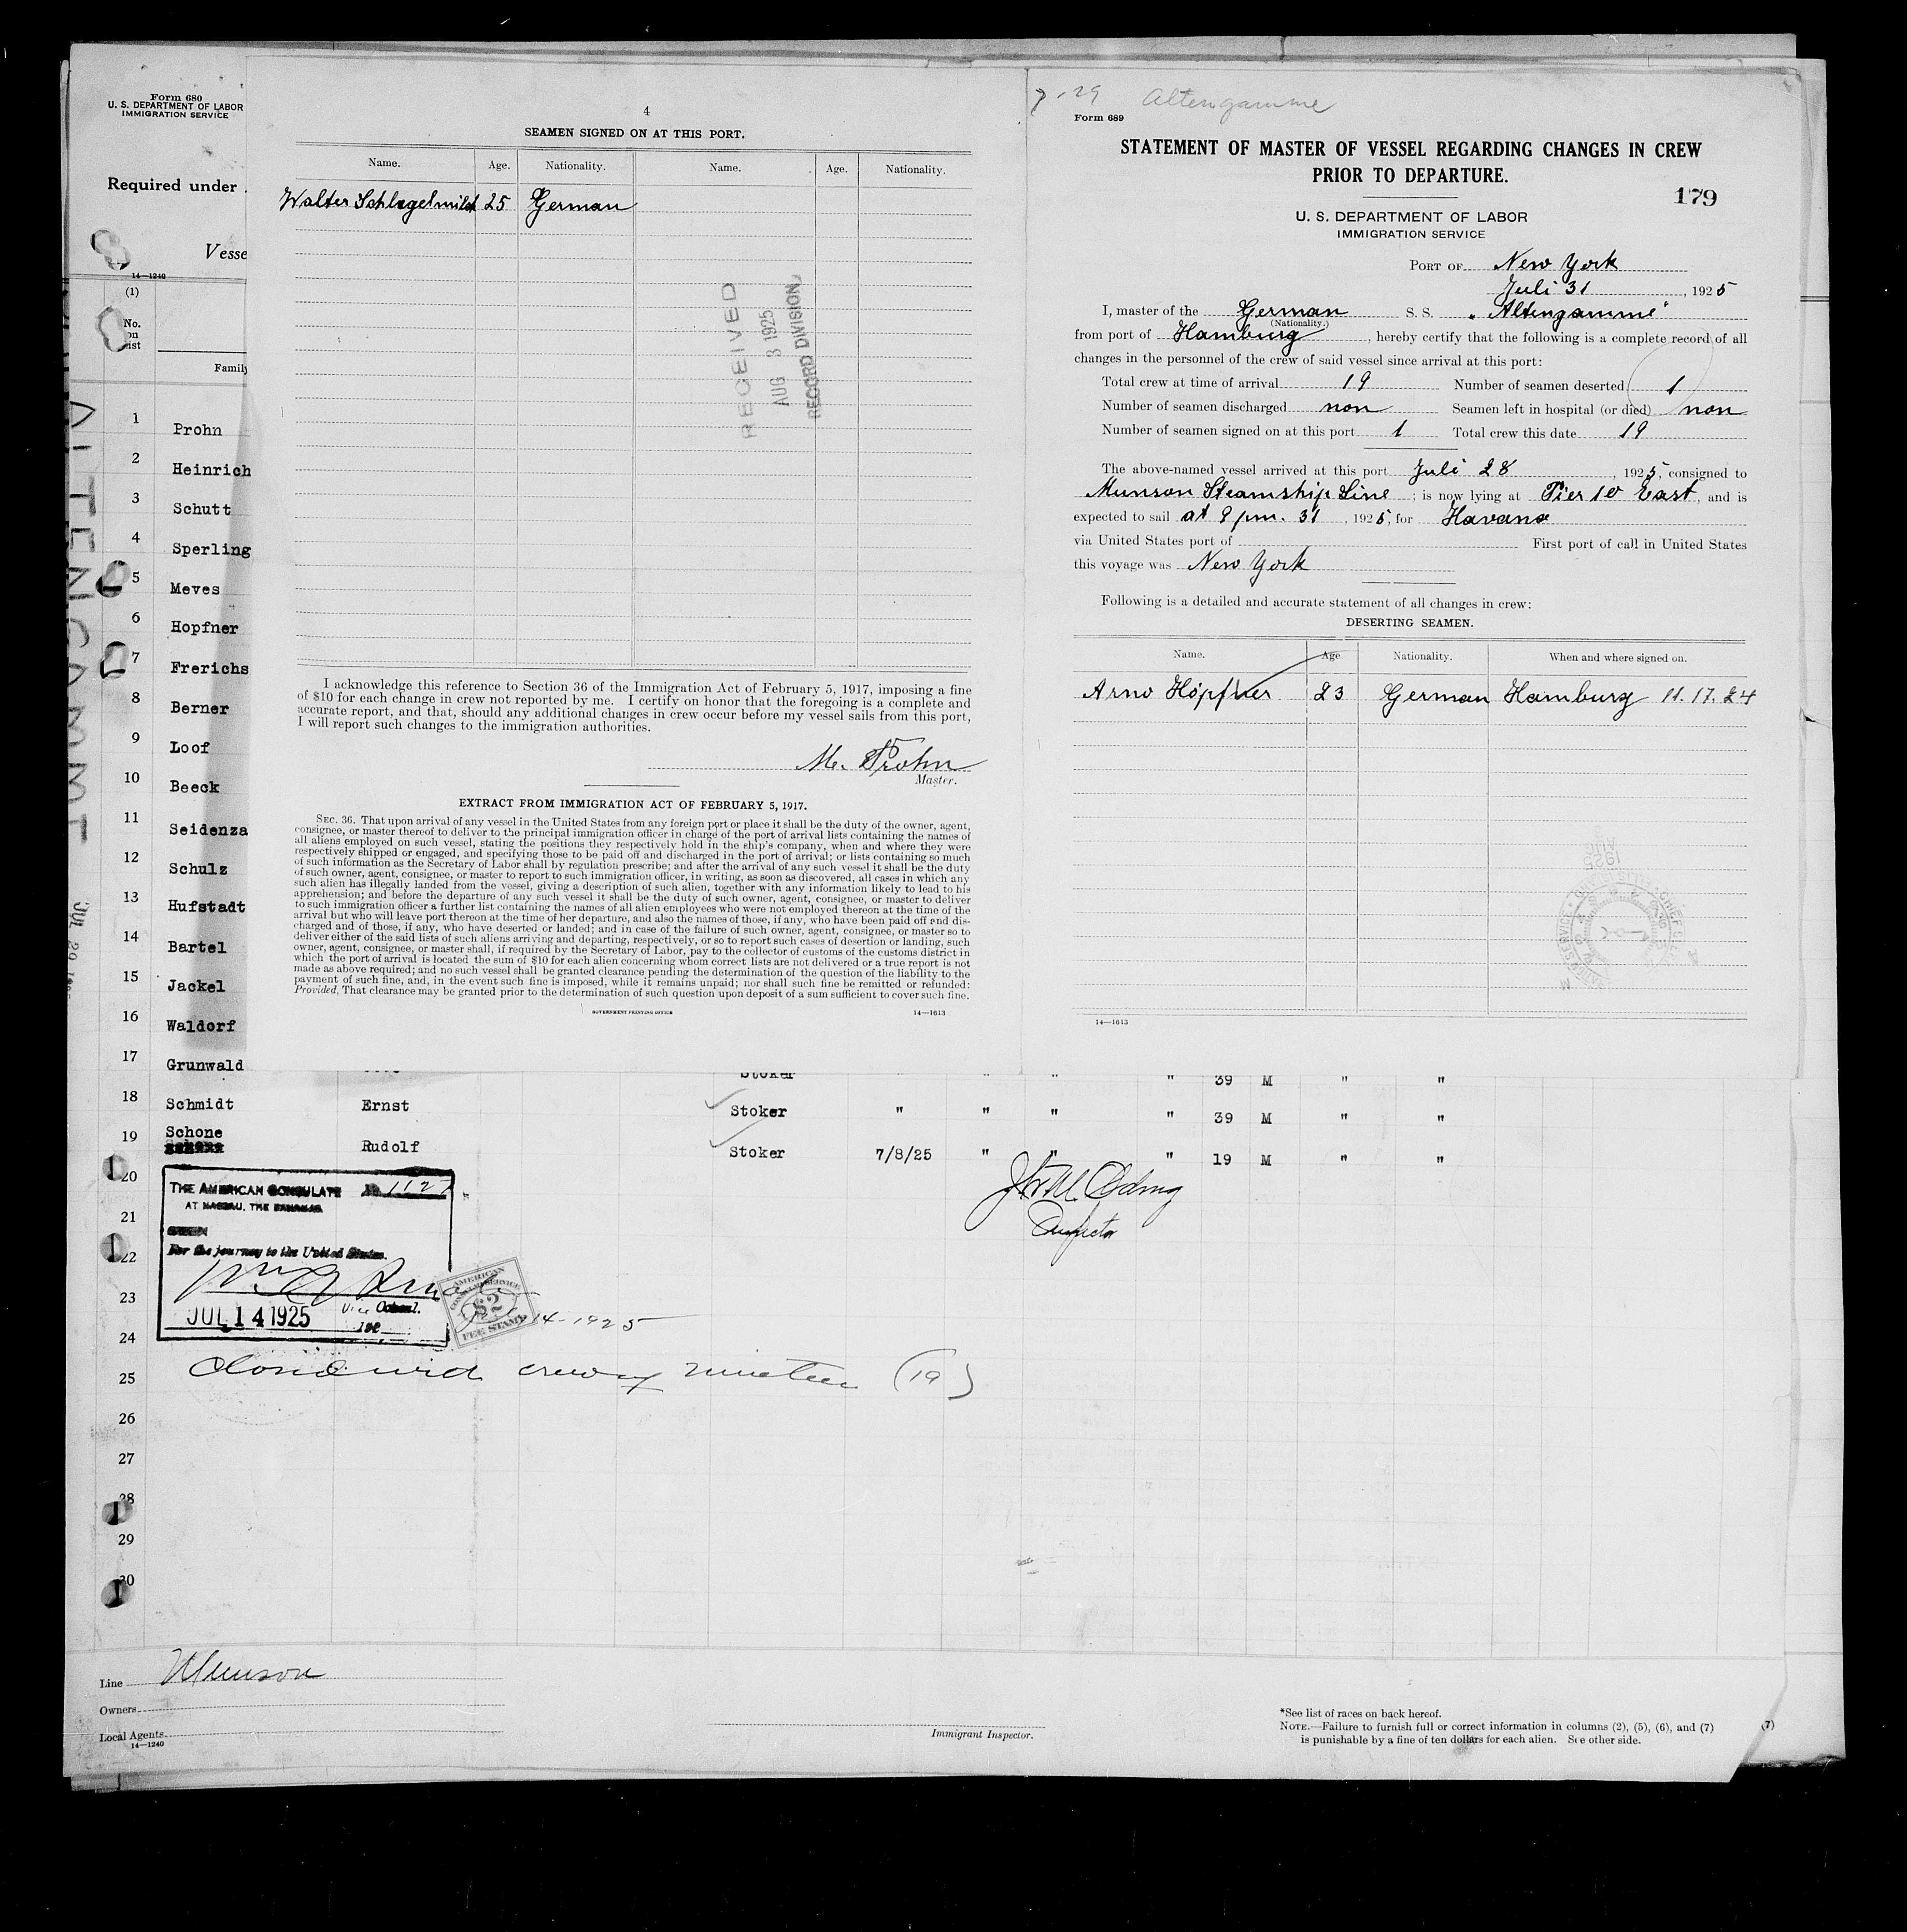 Form 680
U. S. DEPARTMENT OF LABOR
IMMIGRATION SERVICE
Required under
Vesse
14—1240
(1)
No.
on
list
Family
ALTENGAMME
1 Prohn
2 Heinrich
3 Schutt
4 Sperling
5 Meves
6 Hopfner
7 Frerichs
8 Berner
9 Loof
10 Beeck
11 Seidenza
12 Schulz
13 Hufstadt
14 Bartel
15 Jackel
16 Waldorf
17 Grunwald Stoker " " " " 39 M " "
18 Schmidt Ernst Stoker " " " " 39 M " "
19 Schone Rudolf Stoker 7/8/25 " " " 19 M " "
20
21
22
23
24
25
26
27
28
29
30
THE AMERICAN CONSULATE No 1127
AT NASSAU, THE BAHAMAS
SEEN
For the journey to the United States.
Vice Consul.
JUL 14 1925
AMERICAN
CONSULAR SERVICE
$2
FEE STAMP
14-1925
Closed with crew of nineteen (19)
Inspector
Line Munson
Owners
Local Agents
14—1240
Immigrant Inspector.
*See list of races on back hereof.
NOTE.—Failure to furnish full or correct information in columns (2), (5), (6), and (7)
is punishable by a fine of ten dollars for each alien. See other side.
(7)
4
SEAMEN SIGNED ON AT THIS PORT.
Name. Age. Nationality. Name. Age. Nationality.
Walter Schlegelmilch 25 German
RECEIVED
AUG 3 1925
RECORD DIVISION
I acknowledge this reference to Section 36 of the Immigration Act of February 5, 1917, imposing a fine
of $10 for each change in crew not reported by me. I certify on honor that the foregoing is a complete and
accurate report, and that, should any additional changes in crew occur before my vessel sails from this port,
I will report such changes to the immigration authorities.
M. Prohn
Master.
EXTRACT FROM IMMIGRATION ACT OF FEBRUARY 5, 1917.
SEC. 36. That upon arrival of any vessel in the United States from any foreign port or place it shall be the duty of the owner, agent,
consignee, or master thereof to deliver to the principal immigration officer in charge of the port of arrival lists containing the names of
all aliens employed on such vessel, stating the positions they respectively hold in the ship's company, when and where they were
respectively shipped or engaged, and specifying those to be paid off and discharged in the port of arrival; or lists containing so much
of such information as the Secretary of Labor shall by regulation prescribe; and after the arrival of any such vessel it shall be the duty
of such owner, agent, consignee, or master to report to such immigration officer, in writing, as soon as discovered, all cases in which any
such alien has illegally landed from the vessel, giving a description of such alien, together with any information likely to lead to his
apprehension; and before the departure of any such vessel it shall be the duty of such owner, agent, consignee, or master to deliver
to such immigration officer a further list containing the names of all alien employees who were not employed thereon at the time of the
arrival but who will leave port thereon at the time of her departure, and also the names of those, if any, who have been paid off and dis-
charged and of those, if any, who have deserted or landed; and in case of the failure of such owner, agent, consignee, or master so to
deliver either of the said lists of such aliens arriving and departing, respectively, or so to report such cases of desertion or landing, such
owner, agent, consignee, or master shall, if required by the Secretary of Labor, pay to the collector of customs of the customs district in
which the port of arrival is located the sum of $10 for each alien concerning whom correct lists are not delivered or a true report is not
made as above required; and no such vessel shall be granted clearance pending the determination of the question of the liability to the
payment of such fine, and, in the event such fine is imposed, while it remains unpaid; nor shall such fine be remitted or refunded:
Provided, That clearance may be granted prior to the determination of such question upon deposit of a sum sufficient to cover such fine.
GOVERNMENT PRINTING OFFICE 14—1613
7-29 Altengamme
Form 689
STATEMENT OF MASTER OF VESSEL REGARDING CHANGES IN CREW
PRIOR TO DEPARTURE.
179
U. S. DEPARTMENT OF LABOR
IMMIGRATION SERVICE
PORT OF New York
Juli 31, 1925
I, master of the German S. S. "Altengamme"
(Nationality.)
from port of Hamburg, hereby certify that the following is a complete record of all
changes in the personnel of the crew of said vessel since arrival at this port:
Total crew at time of arrival 19 Number of seamen deserted 1
Number of seamen discharged non Seamen left in hospital (or died) non
Number of seamen signed on at this port 1 Total crew this date 19
The above-named vessel arrived at this port Juli 28, 1925, consigned to
Munson Steamship Line; is now lying at Pier 10 East, and is
expected to sail at 9 pm. 31, 1925, for Havana
via United States port of First port of call in United States
this voyage was New York
Following is a detailed and accurate statement of all changes in crew:
DESERTING SEAMEN.
Name. Age Nationality. When and where signed on.
Arno Höpfner 23 German Hamburg 11.17.24
14—1613